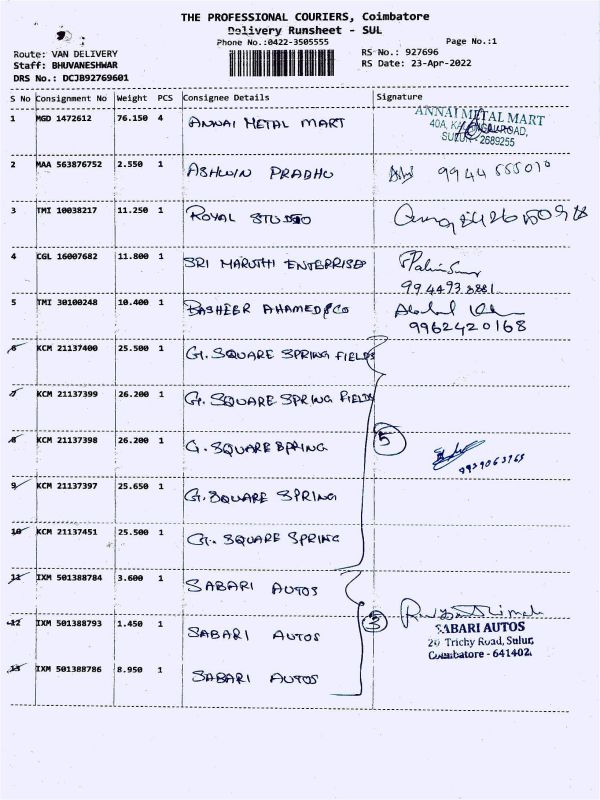 THE PROFESSIONAL COURIERS, Coimbatore
Delivery Runsheet - SUL
Phone No.:0422-3505555
Page No.:1
Route: VAN DELIVERY
RS No.: 927696
Staff: BHUVANESHWAR
RS Date: 23-Apr-2022
DRS No.: DCJB92769601
S No Consignment No Weight PCS Consignee Details Signature
1 MGD 1472612 76.150 4 ANNAI METAL MART
ANNAI METAL MART
40A, ROAD,
SULUR - 2689255
2 MAA 563876752 2.550 1 ASHWIN PRABHU
3 TMI 10038217 11.250 1 ROYAL STUDIO
4 CGL 16007682 11.800 1 SRI MARUTHI ENTERPRISES
5 TMI 30100248 10.400 1 BASHEER AHAMED & CO
9962420168
6 KCM 21137400 25.500 1 G. SQUARE SPRING FIELDS
7 KCM 21137399 26.200 1 G. SQUARE SPRING FIELDS
8 KCM 21137398 26.200 1 G. SQUARE SPRING 5
9 KCM 21137397 25.650 1 G. SQUARE SPRING
10 KCM 21137451 25.500 1 G. SQUARE SPRING
11 IXM 501388784 3.600 1 SABARI AUTOS
12 IXM 501388793 1.450 1 SABARI AUTOS 3
SABARI AUTOS
20 Trichy Road, Sulur,
Coimbatore - 641402.
13 IXM 501388786 8.950 1 SABARI AUTOS